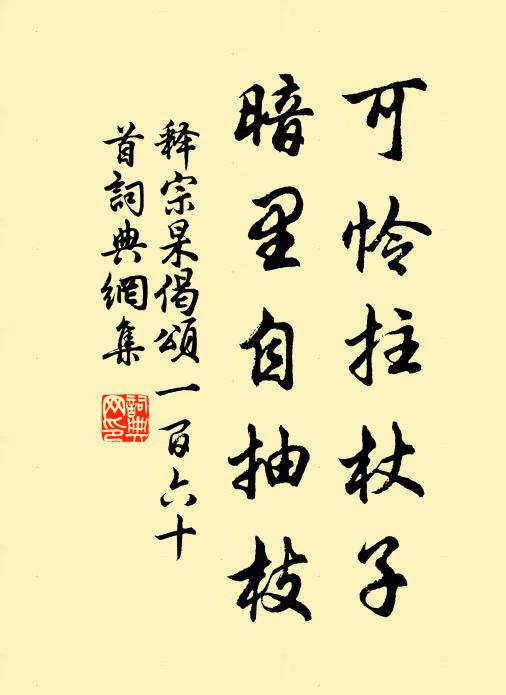 可怜拄杖子
暗里自抽枝
释宗杲偈頌一百六十
首詞典網集
詞典
网印